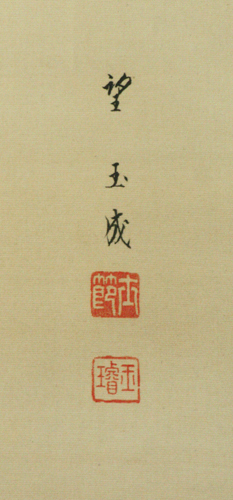 望玉成
玉璿